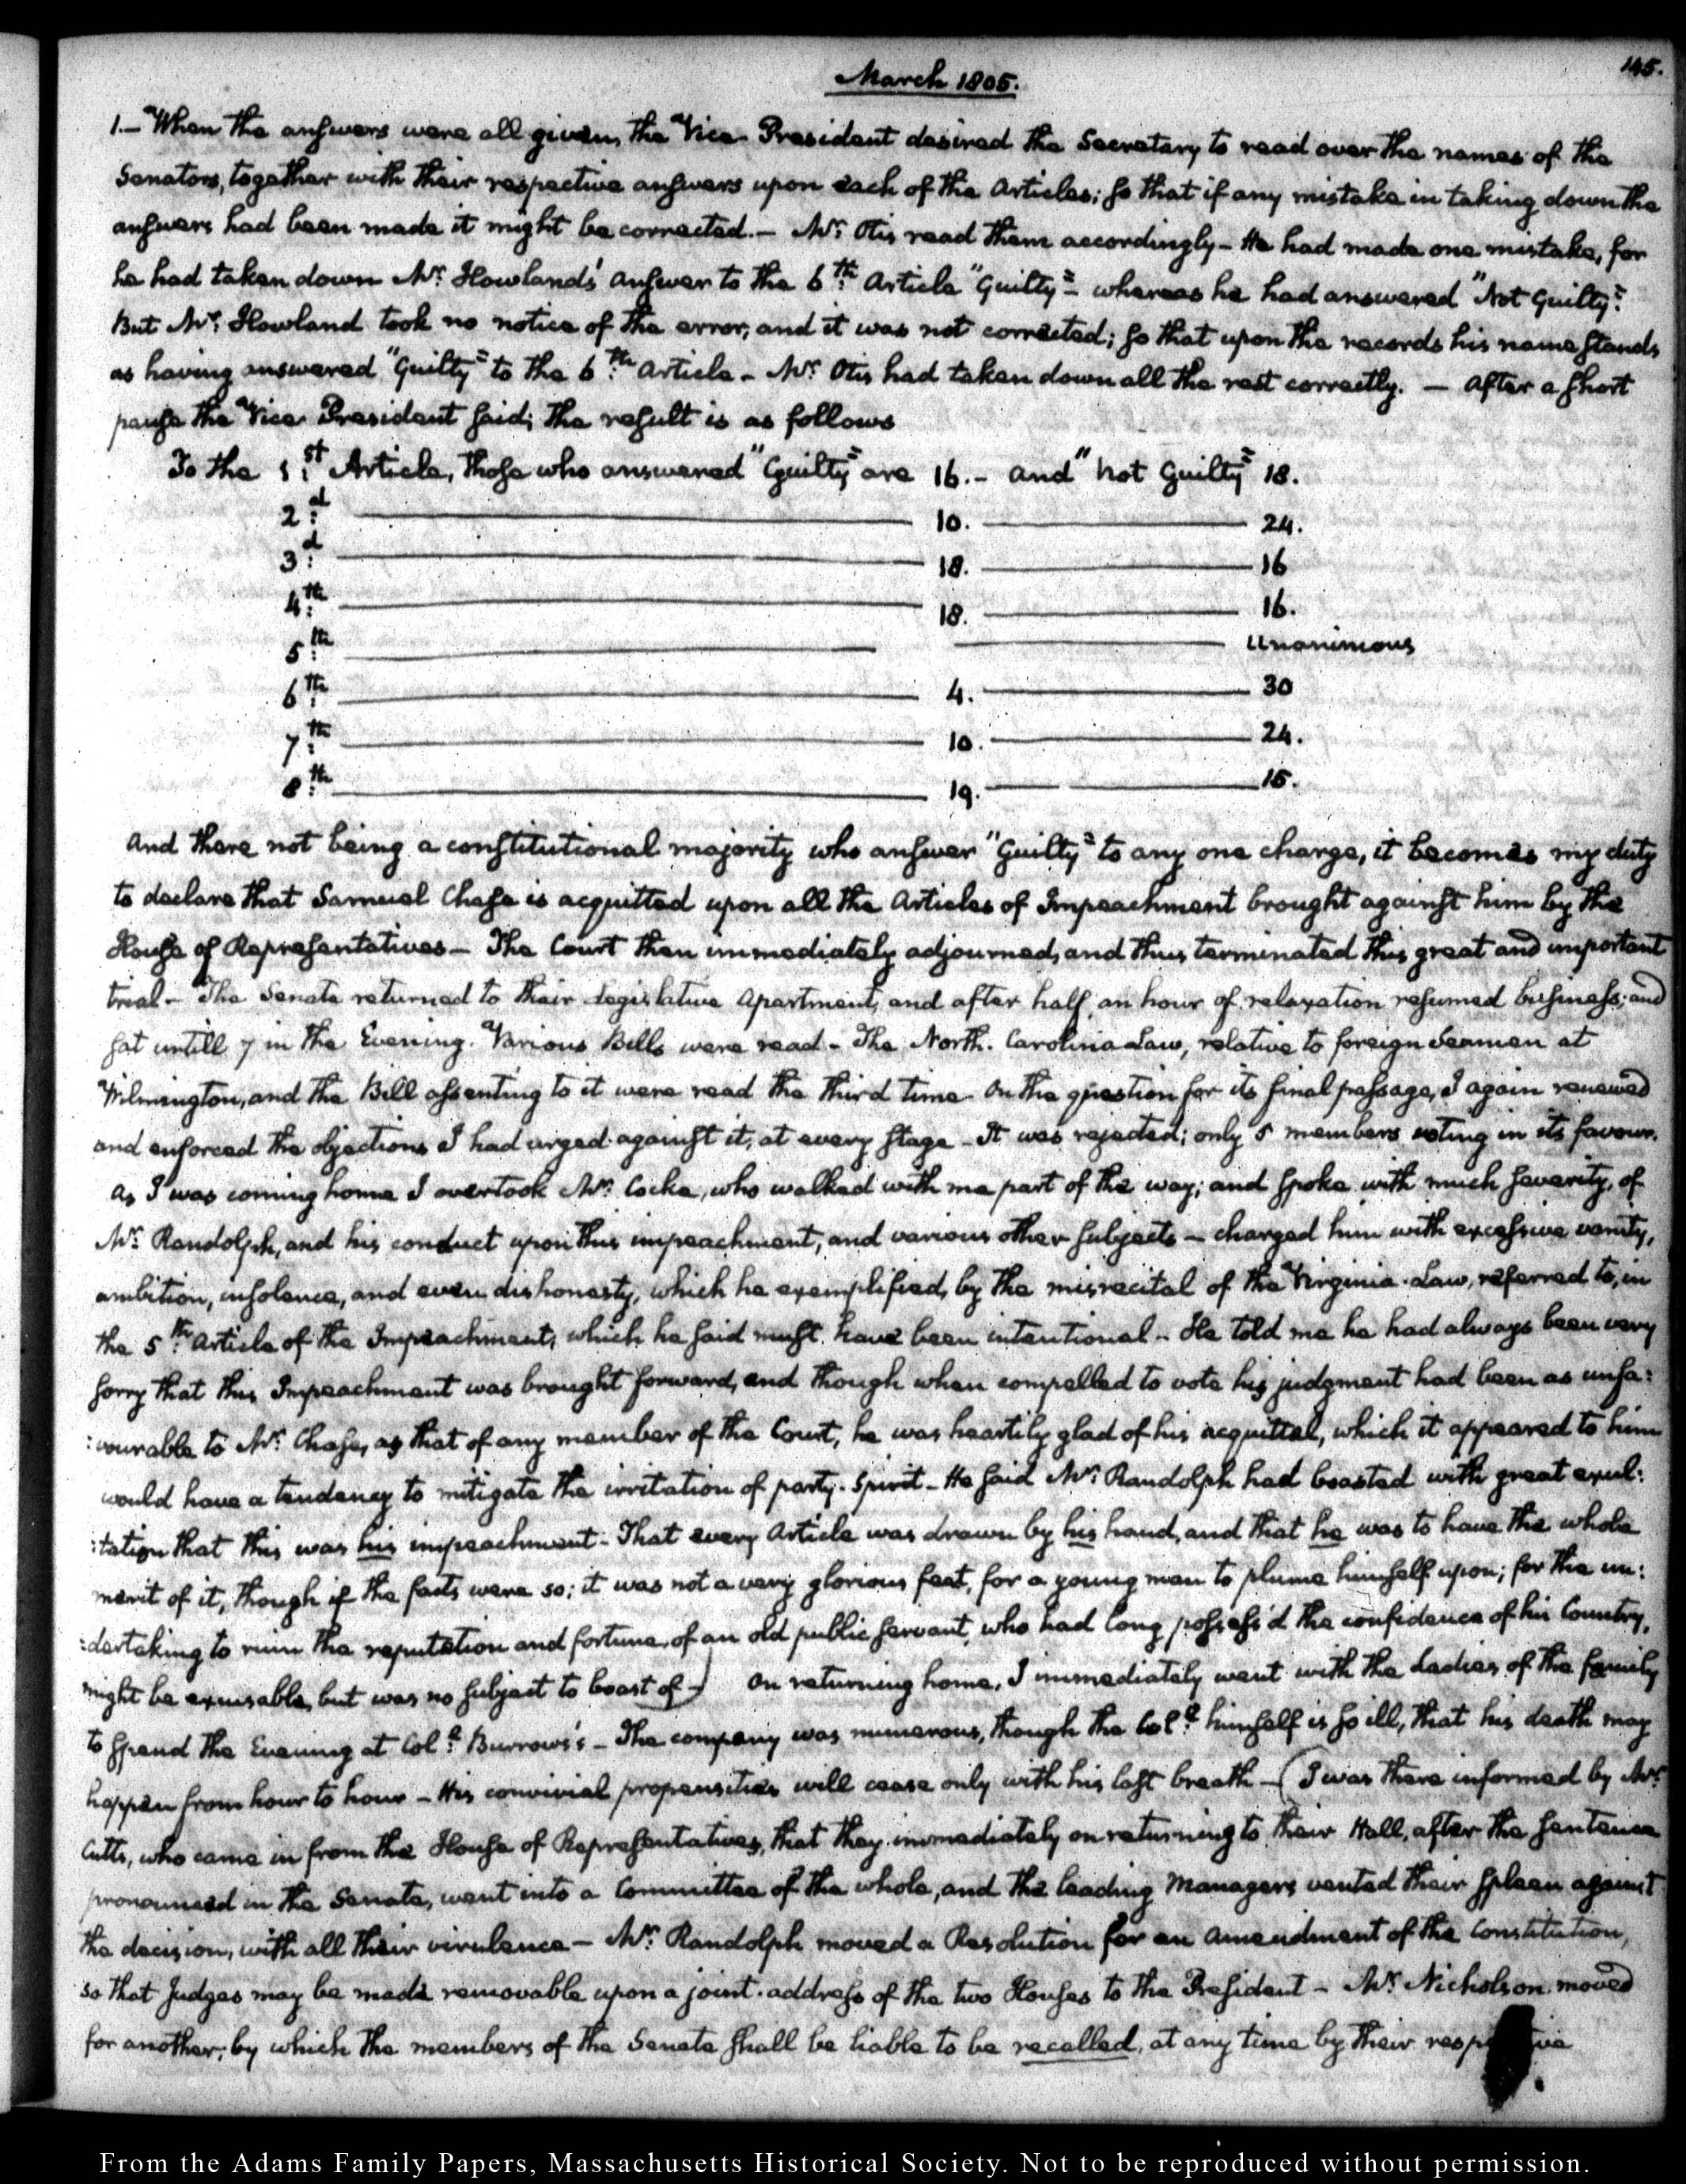 March 1805.
145.
1.— When the answers were all given, the Vice-President desired the Secretary to read over the names of the
Senators, together with their respective answers upon each of the Articles; so that if any mistake in taking down the
answers had been made it might be corrected.— Mr: Otis read them accordingly— He had made one mistake, for
he had taken down Mr: Howland's answer to the 6th: Article "Guilty"— whereas he had answered "Not Guilty".
But Mr: Howland took no notice of the error, and it was not corrected; so that upon the records his name stands
as having answered "Guilty" to the 6th: Article— Mr: Otis had taken down all the rest correctly. — After a short
pause the Vice-President said; the result is as follows
To the 1st: Article, those who answered "Guilty" are 16.— and "not Guilty" 18.
2d: 10. 24.
3d: 18. 16
4th: 18. 16.
5th: Unanimous
6th: 4. 30
7th: 10. 24.
8th: 19. 15.
And there not being a constitutional majority who answer "Guilty" to any one charge, it becomes my duty
to declare that Samuel Chase is acquitted upon all the Articles of Impeachment brought against him by the
House of Representatives— The Court then immediately adjourned, and thus terminated this great and important
trial— The Senate returned to their Legislative Apartment, and after half an hour of relaxation resumed business; and
sat untill 7 in the Evening. Various Bills were read— The North-Carolina Law, relative to foreign Seamen at
Wilmington, and the Bill assenting to it were read the third time— On the question for its final passage, I again renewed
and enforced the objections I had urged against it, at every stage— It was rejected; only 5 members voting in its favour.
As I was coming home I overtook Mr: Cocke, who walked with me part of the way; and spoke with much severity, of
Mr: Randolph, and his conduct upon this impeachment, and various other subjects— charged him with excessive vanity,
ambition, insolence, and even dishonesty, which he exemplified, by the misrecital of the Virginia-Law, referred to, in
the 5th: Article of the Impeachment, which he said must have been intentional— He told me he had always been very
sorry that this Impeachment was brought forward, and though when compelled to vote his judgment had been as unfa:
:vourable to Mr: Chase, as that of any member of the Court, he was heartily glad of his acquittal, which it appeared to him
would have a tendency to mitigate the irritation of party-spirit— He said Mr: Randolph had boasted with great exul:
:tation that this was his impeachment— That every Article was drawn by his hand, and that he was to have the whole
merit of it, though if the facts were so; it was not a very glorious feat, for a young man to plume himself upon; for the un:
:dertaking to ruin the reputation and fortune, of an old public servant, who had long possess'd the confidence of his Country,
might be excusable, but was no subject to boast of—) On returning home, I immediately went with the Ladies of the family
to spend the Evening at Coll: Burrows's— The company was numerous, though the Coll: himself is so ill, that his death may
happen from hour to hour— His convivial propensities will cease only with his last breath— (I was there informed by Mr:
Cutts, who came in from the House of Representatives, that they immediately on returning to their Hall, after the sentence
pronounced in the Senate, went into a Committee of the whole, and the leading Managers vented their spleen against
the decision, with all their virulence— Mr: Randolph moved a Resolution for an amendment of the Constitution,
so that Judges may be made removable upon a joint-address of the two Houses to the President— Mr: Nicholson moved
for another; by which the members of the Senate shall be liable to be recalled, at any time by their respective
From the Adams Family Papers, Massachusetts Historical Society. Not to be reproduced without permission.